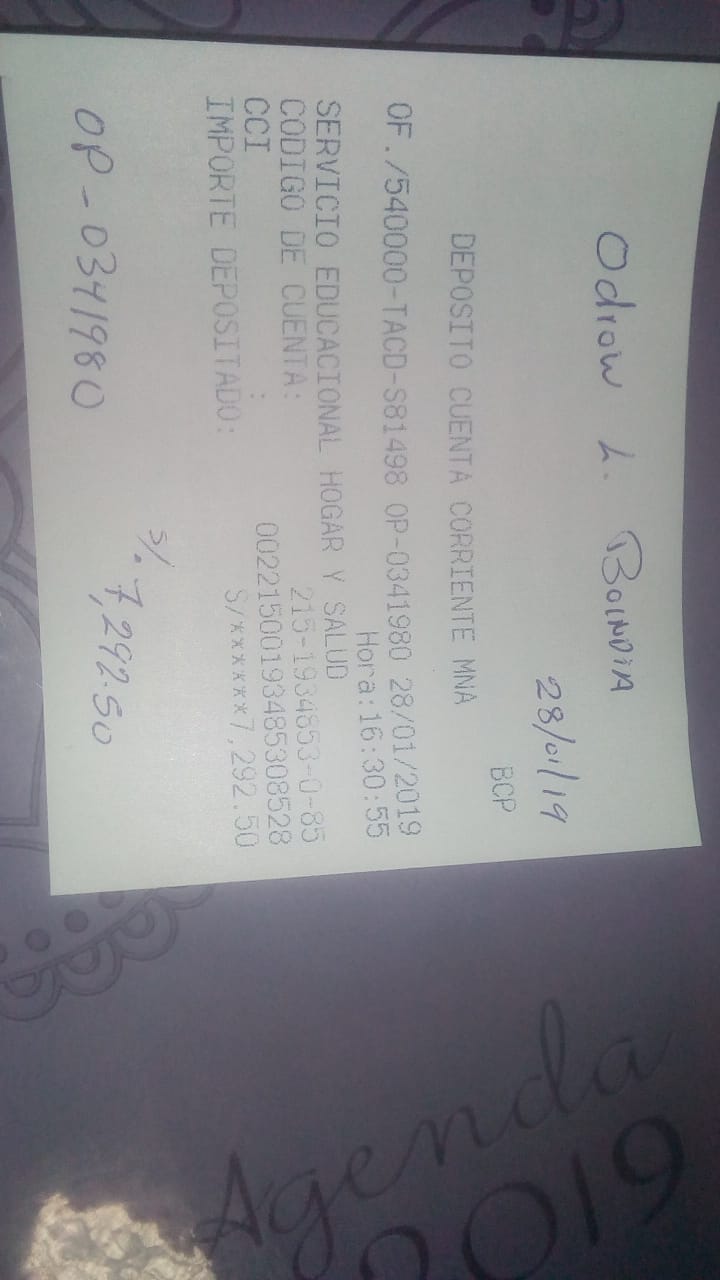 Odrow L. BOINDIA
28/01/19
BCP
DEPOSITO CUENTA CORRIENTE MNA
OF./540000-TACD-S81498 OP-0341980 28/01/2019
Hora:16:30:55
SERVICIO EDUCACIONAL HOGAR Y SALUD
CODIGO DE CUENTA: 215-1934853-0-85
CCI : 00221500193485308528
IMPORTE DEPOSITADO: S/******7,292.50
S/. 7,292.50
OP-0341980
Agenda
2019